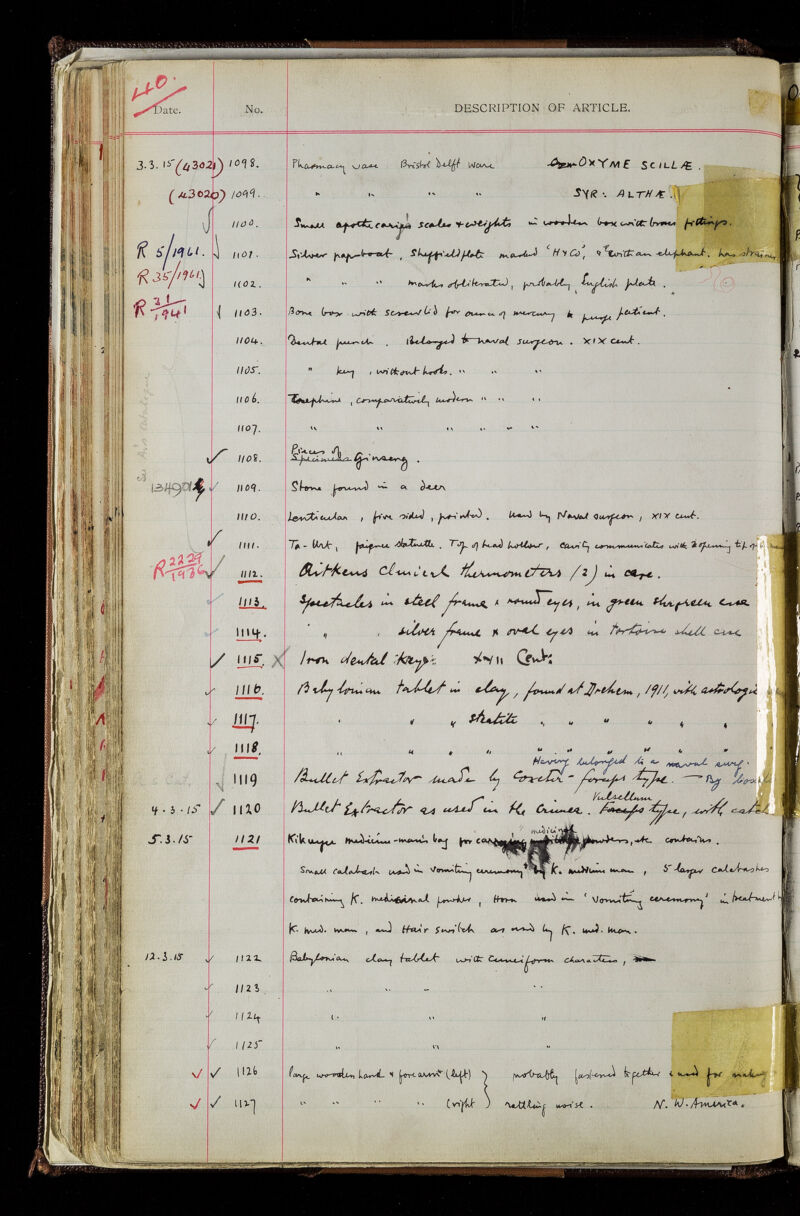 40.
Date. No. DESCRIPTION OF ARTICLE.
3.3.15 (43021) 1098. Pharmacy vase Bristol Delft Ware OXYME SCILLÆ.
(43020) 1099. " " " " SYR: ALTHÆ.
1100. Small apothecary's scales & weights in wooden box with brass fittings.
R 5/1961. 1101. Silver papboat, Sheffield plate marked 'H & Co', with an elephant. has strainer
R 35/1961 1102. " " " marks obliterated, probably English plate.
R 31/1941 1103. Bone box with screw lid for ounce of mercury to purge patient.
1104. Dental punch. Belonged to naval surgeon. XIX cent.
1105. " key, without hooks. " " "
1106. Trephine, comparatively modern " " "
1107. " " " " " "
1108. Pieces of Specimens Ginseng.
134901 1109. Stone found in a deer
See A.'s Catalogue
1110. Lenticular, five sided, pointed. Used by Naval surgeon, XIX cent.
1111. Ta-Urt, faience statuette. Top of head hollow, cavity communicates with opening
R 2229/1936 1112. Aitkens Clinical thermometers (2) in case.
1113. Spectacles in steel frame & round eyes, in green shagreen case
1114. " , silver frame & oval eyes in tortoise shell case
1115. X Iron dental keys: XVII Cent:
1116. Babylonian tablet in clay, found at Drehem, 1911, with
1117. " " " steatite " " " " " "
1118. " " " " " " " "
Having belonged to a naval surg.
1119 Bullet Extractor made by Coxeter - forceps type. — By
4.3.15 1120 Bullet Extractor as used in the Crimea. Forceps Vulsellum type, with
5.3.15 1121 Kikuyu medicine-man's bag for carrying medicinal powders, etc contains.
Small calabash used in vomiting ceremony by K. medicine man, 5 larger calabashes
containing K. medicinal powder, Horn used in 'vomiting ceremony' in treatment
K. med. man, and Hair switch as used by K. med. man.
12.3.15 1122 Babylonian clay tablet with Cuneiform characters,
1123 " " " "
1124 " " "
1125 " " "
1126 Large wooden hand & forearm (left) } probably fastened together & used for making
1127 " " " " (right) } rattling noise. N. W. America.